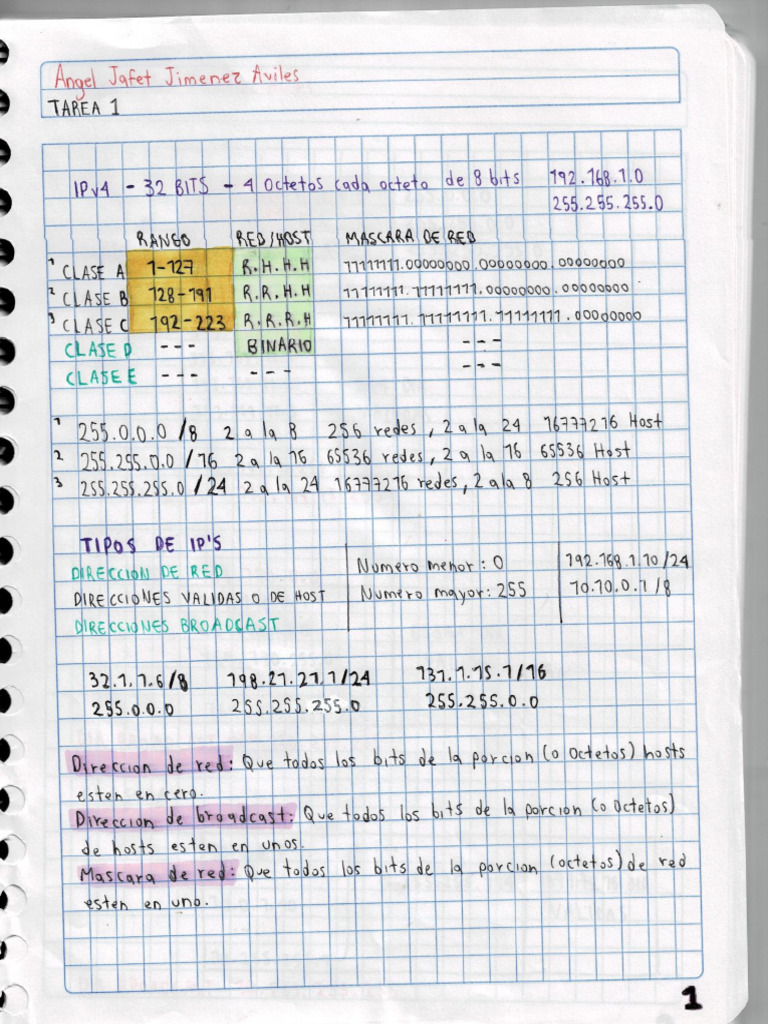 Angel Jafet Jimenez Aviles
TAREA 1
IPv4 - 32 BITS - 4 Octetos cada octeto de 8 bits 192.168.1.0
255.255.255.0
RANGO RED/HOST MASCARA DE RED
1 CLASE A 1-127 R.H.H.H 11111111.00000000.00000000.00000000
2 CLASE B 128-191 R.R.H.H 11111111.11111111.00000000.00000000
3 CLASE C 192-223 R.R.R.H 11111111.11111111.11111111.00000000
CLASE D --- BINARIO ---
CLASE E --- --- ---
1 255.0.0.0 /8 2 a la 8 256 redes, 2 a la 24 16777216 Host
2 255.255.0.0 /16 2 a la 16 65536 redes, 2 a la 16 65536 Host
3 255.255.255.0 /24 2 a la 24 16777216 redes, 2 a la 8 256 Host
TIPOS DE IP'S
DIRECCION DE RED Numero menor: 0 192.168.1.10/24
DIRECCIONES VALIDAS O DE HOST Numero mayor: 255 10.10.0.1/8
DIRECCIONES BROADCAST
32.1.1.6/8 198.21.21.1/24 131.1.15.1/16
255.0.0.0 255.255.255.0 255.255.0.0
Direccion de red: Que todos los bits de la porcion (o Octetos) hosts
esten en cero.
Direccion de broadcast: Que todos los bits de la porcion (o Octetos)
de hosts esten en unos.
Mascara de red: Que todos los bits de la porcion (octetos) de red
esten en uno.
1